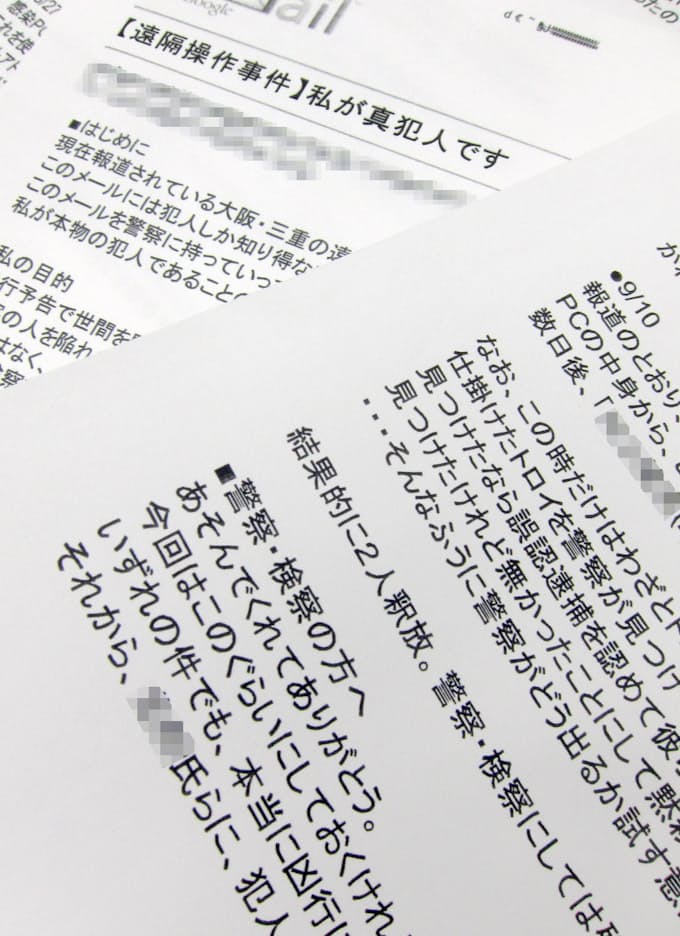 8/27
感染P
Google
ail
【遠隔操作事件】私が真犯人です
■はじめに
現在報道されている大阪・三重の遠
このメールには犯人しか知り得な
このメールを警察に持っていっ
私が本物の犯人であることの
私の目的
行予告で世間を
の人を陥れ
はなく、
●9/10
報道のとおり、
PCの中身から、
数日後、「
なお、この時だけはわざとト
仕掛けたトロイを警察が見つけ
見つけたなら誤認逮捕を認めて彼
見つけたけれど無かったことにして黙
・・・そんなふうに警察がどう出るか試す意
結果的に2人釈放。警察・検察にしては
■警察・検察の方へ
あそんでくれてありがとう。
今回はこのぐらいにしておくけれ
いずれの件でも、本当に凶行に
それから、
氏らに、犯人